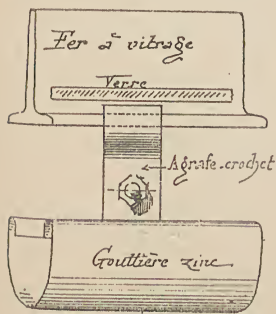 Fer à vitrage
Verre
Agrafe-crochet
Gouttière zinc